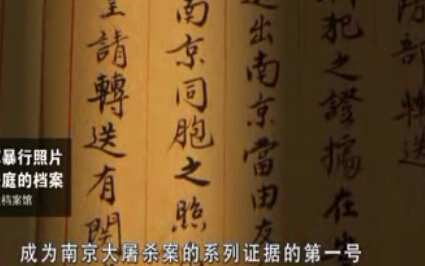 防部轉送
犯之證據在
出南京當由
南京同胞之照
請轉送有関
暴行照片
庭的档案
档案馆
成为南京大屠杀案的系列证据的第一号